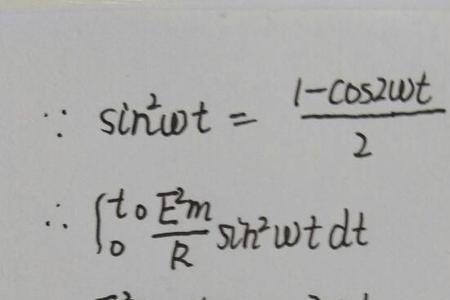 ∵ sin²ωt = (1-cos2ωt)/2
∴ ∫₀^t₀ (E²m/R) sin²ωt dt